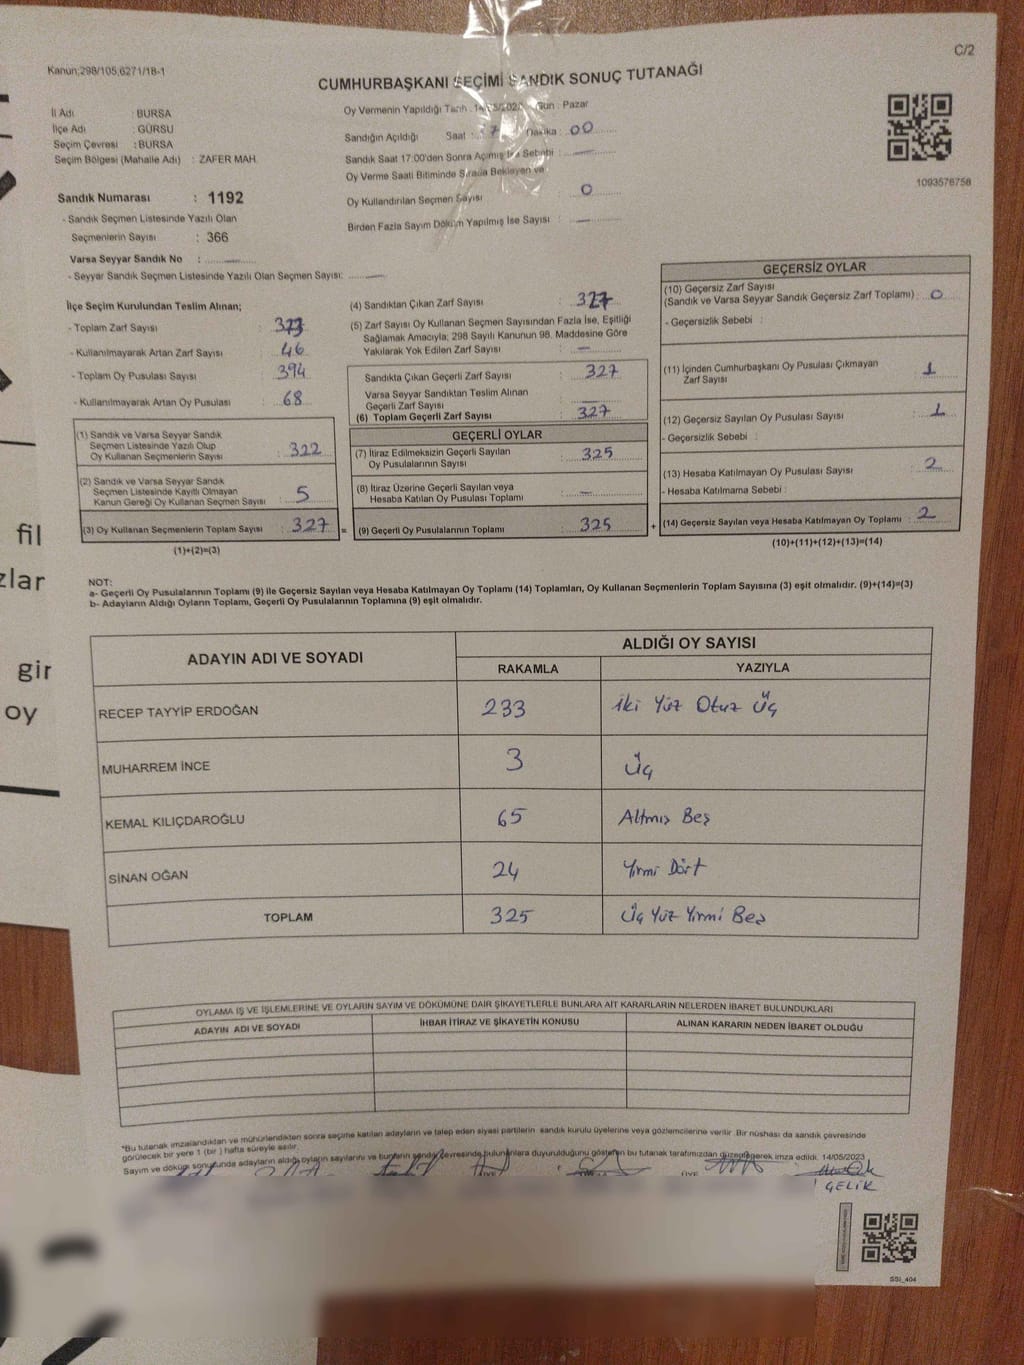 C/2
Kanun;298/105,6271/18-1
CUMHURBAŞKANI SEÇİMİ SANDIK SONUÇ TUTANAĞI
İl Adı : BURSA
İlçe Adı : GÜRSU
Seçim Çevresi : BURSA
Seçim Bölgesi (Mahalle Adı) : ZAFER MAH.
Oy Vermenin Yapıldığı Tarih : Gün : Pazar
Sandığın Açıldığı Saat : 7 Dakika : 00
Sandık Saat 17:00'den Sonra Açılmış İse Sebebi :
Oy Verme Saati Bitiminde Sırada Bekleyen ve
Oy Kullandırılan Seçmen Sayısı : 0
Birden Fazla Sayım Döküm Yapılmış İse Sayısı : —
1093576758
Sandık Numarası : 1192
- Sandık Seçmen Listesinde Yazılı Olan
Seçmenlerin Sayısı : 366
Varsa Seyyar Sandık No : —
- Seyyar Sandık Seçmen Listesinde Yazılı Olan Seçmen Sayısı: —
İlçe Seçim Kurulundan Teslim Alınan;
- Toplam Zarf Sayısı : 373
- Kullanılmayarak Artan Zarf Sayısı : 46
- Toplam Oy Pusulası Sayısı : 394
- Kullanılmayarak Artan Oy Pusulası : 68
(1) Sandık ve Varsa Seyyar Sandık
Seçmen Listesinde Yazılı Olup
Oy Kullanan Seçmenlerin Sayısı : 322
(2) Sandık ve Varsa Seyyar Sandık
Seçmen Listesinde Kayıtlı Olmayan
Kanun Gereği Oy Kullanan Seçmen Sayısı : 5
(3) Oy Kullanan Seçmenlerin Toplam Sayısı : 327
(1)+(2)=(3)
(4) Sandıktan Çıkan Zarf Sayısı : 327
(5) Zarf Sayısı Oy Kullanan Seçmen Sayısından Fazla İse, Eşitliği
Sağlamak Amacıyla; 298 Sayılı Kanunun 98. Maddesine Göre
Yakılarak Yok Edilen Zarf Sayısı : —
Sandıkta Çıkan Geçerli Zarf Sayısı : 327
Varsa Seyyar Sandıktan Teslim Alınan
Geçerli Zarf Sayısı : —
(6) Toplam Geçerli Zarf Sayısı : 327
GEÇERLİ OYLAR
(7) İtiraz Edilmeksizin Geçerli Sayılan
Oy Pusulalarının Sayısı : 325
(8) İtiraz Üzerine Geçerli Sayılan veya
Hesaba Katılan Oy Pusulası Toplamı : —
= (9) Geçerli Oy Pusulalarının Toplamı : 325 +
GEÇERSİZ OYLAR
(10) Geçersiz Zarf Sayısı
(Sandık ve Varsa Seyyar Sandık Geçersiz Zarf Toplamı) : 0
- Geçersizlik Sebebi :
(11) İçinden Cumhurbaşkanı Oy Pusulası Çıkmayan
Zarf Sayısı : 1
(12) Geçersiz Sayılan Oy Pusulası Sayısı : 1
- Geçersizlik Sebebi :
(13) Hesaba Katılmayan Oy Pusulası Sayısı : 2
- Hesaba Katılmama Sebebi :
(14) Geçersiz Sayılan veya Hesaba Katılmayan Oy Toplamı : 2
(10)+(11)+(12)+(13)=(14)
NOT:
a- Geçerli Oy Pusulalarının Toplamı (9) ile Geçersiz Sayılan veya Hesaba Katılmayan Oy Toplamı (14) Toplamları, Oy Kullanan Seçmenlerin Toplam Sayısına (3) eşit olmalıdır. (9)+(14)=(3)
b- Adayların Aldığı Oyların Toplamı, Geçerli Oy Pusulalarının Toplamına (9) eşit olmalıdır.
ADAYIN ADI VE SOYADI ALDIĞI OY SAYISI
RAKAMLA YAZIYLA
RECEP TAYYİP ERDOĞAN 233 İki Yüz Otuz Üç
MUHARREM İNCE 3 Üç
KEMAL KILIÇDAROĞLU 65 Altmış Beş
SİNAN OĞAN 24 Yirmi Dört
TOPLAM 325 Üç Yüz Yirmi Beş
OYLAMA İŞ VE İŞLEMLERİNE VE OYLARIN SAYIM VE DÖKÜMÜNE DAİR ŞİKAYETLERLE BUNLARA AİT KARARLARIN NELERDEN İBARET BULUNDUKLARI
ADAYIN ADI VE SOYADI İHBAR İTİRAZ VE ŞİKAYETİN KONUSU ALINAN KARARIN NEDEN İBARET OLDUĞU
*Bu tutanak imzalandıktan ve mühürlendikten sonra seçime katılan adayların ve talep eden siyasi partilerin sandık kurulu üyelerine veya gözlemcilerine verilir. Bir nüshası da sandık çevresinde
görülecek bir yere 1 (bir) hafta süreyle asılır.
Sayım ve döküm sonucunda adayların aldığı oyların sayılarını ve bunların sandık çevresinde bulunanlara duyurulduğunu gösteren bu tutanak tarafımızdan düzenlenerek imza edildi. 14/05/2023
ÜYE
ÇELİK
SSI_404
fil
zlar
gir
oy